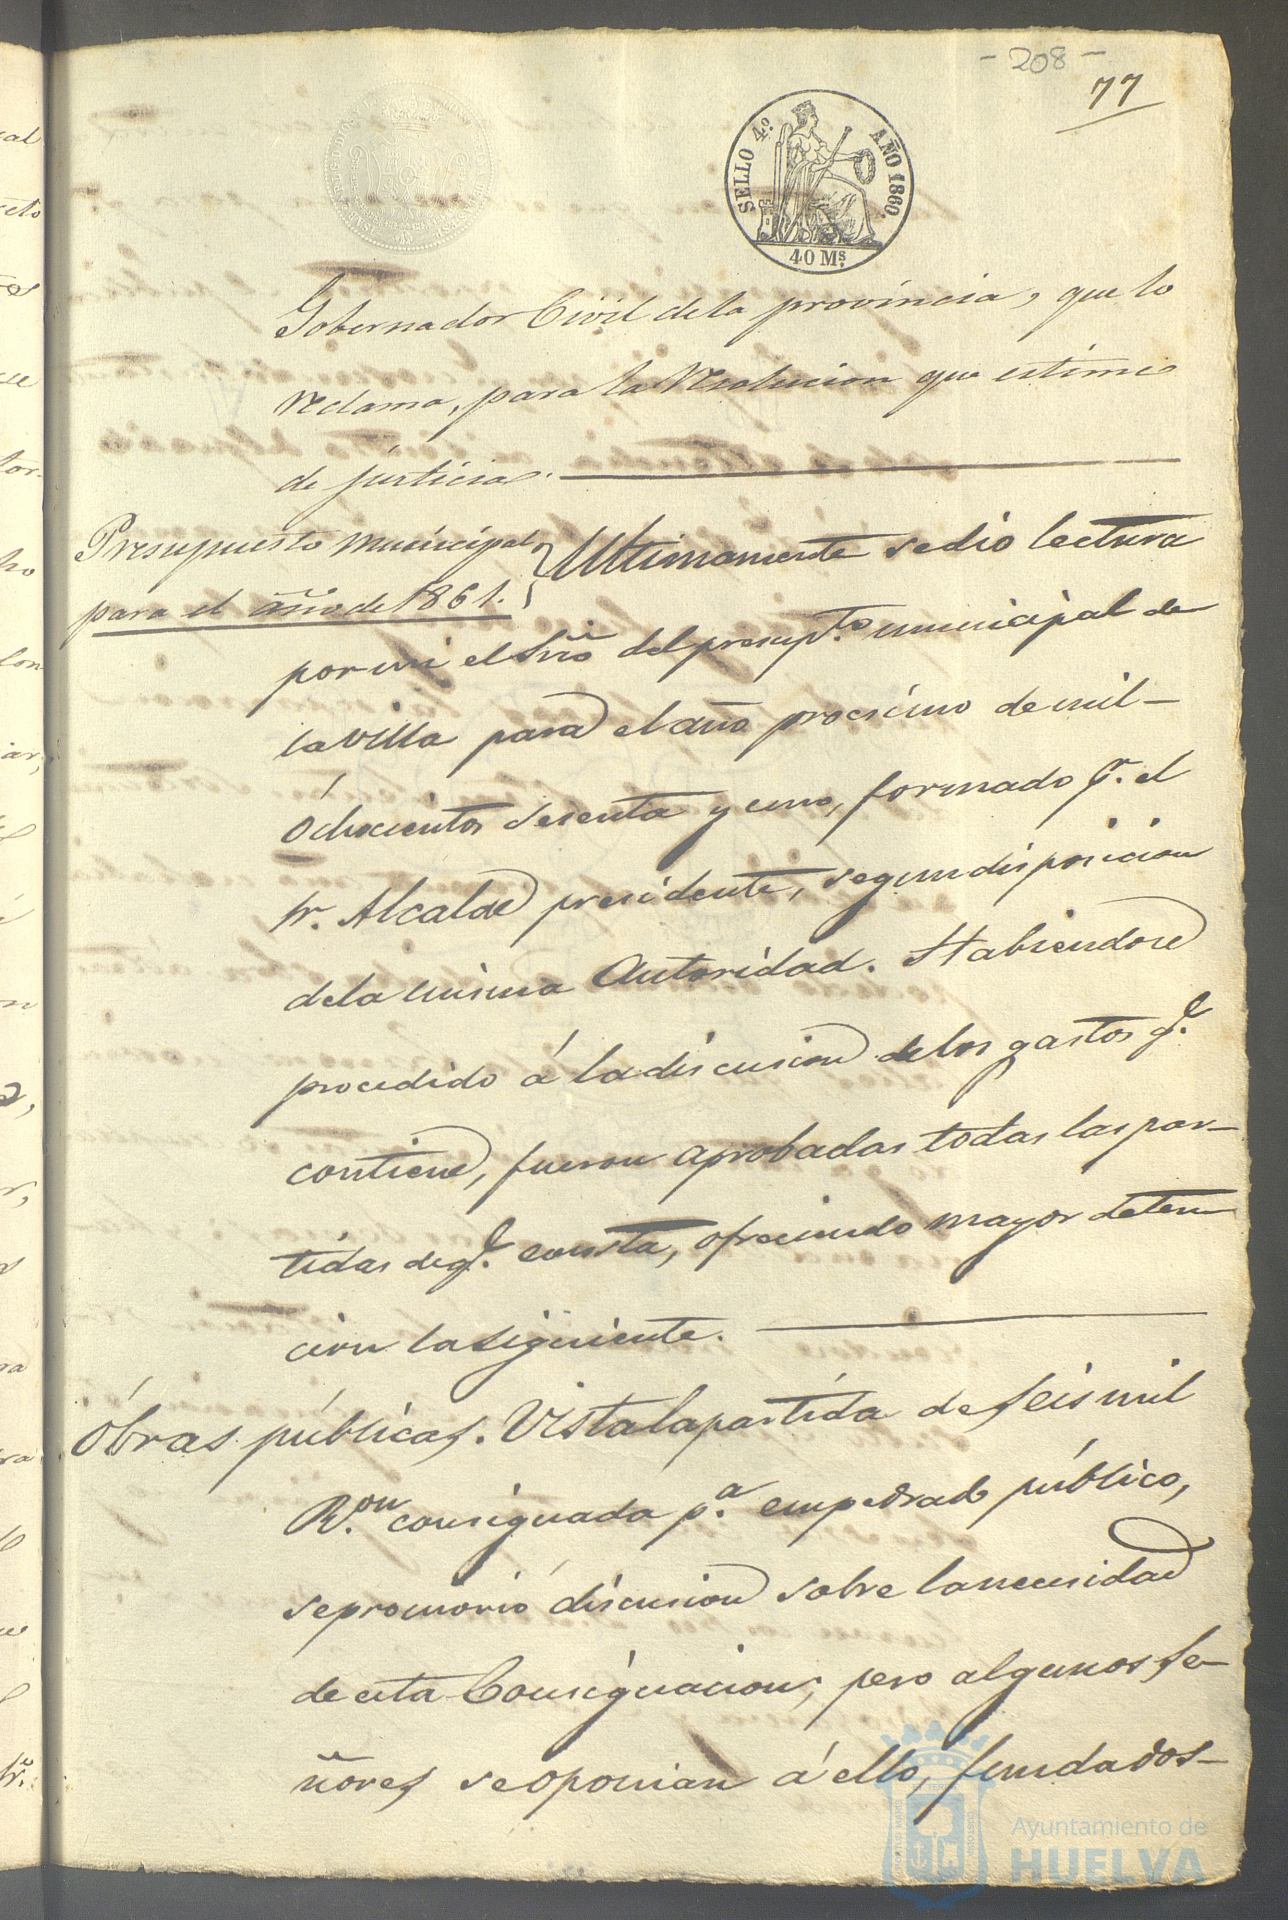 - 208 -
77
SELLO 4.º AÑO 1860.
40 Ms.
Gobernador Civil de la provincia, que lo
reclama, para la resolucion que estime
de justicia.
Presupuesto municipal
para el año de 1861.
Ultimamente se dio lectura
por mi el Srio del presupto. municipal de
la villa para el año procsimo de mil
ochocientos sesenta y uno, formado pr. el
Sr. Alcalde presidente, segun disposicion
de la misma Autoridad. Habiendose
procedido á la discusion de los gastos qe.
contiene, fueron aprobadas todas las par-
tidas de qe. consta, ofreciendo mayor deten
cion la siguiente.
Óbras públicas. Vista la partida de seis mil
Ron. consignada pa. empedrado público,
se promovió discusion sobre la necesidad
de esta Consignacion; pero algunos Se-
ñores se oponian á ello, fundados
Ayuntamiento de
HUELVA